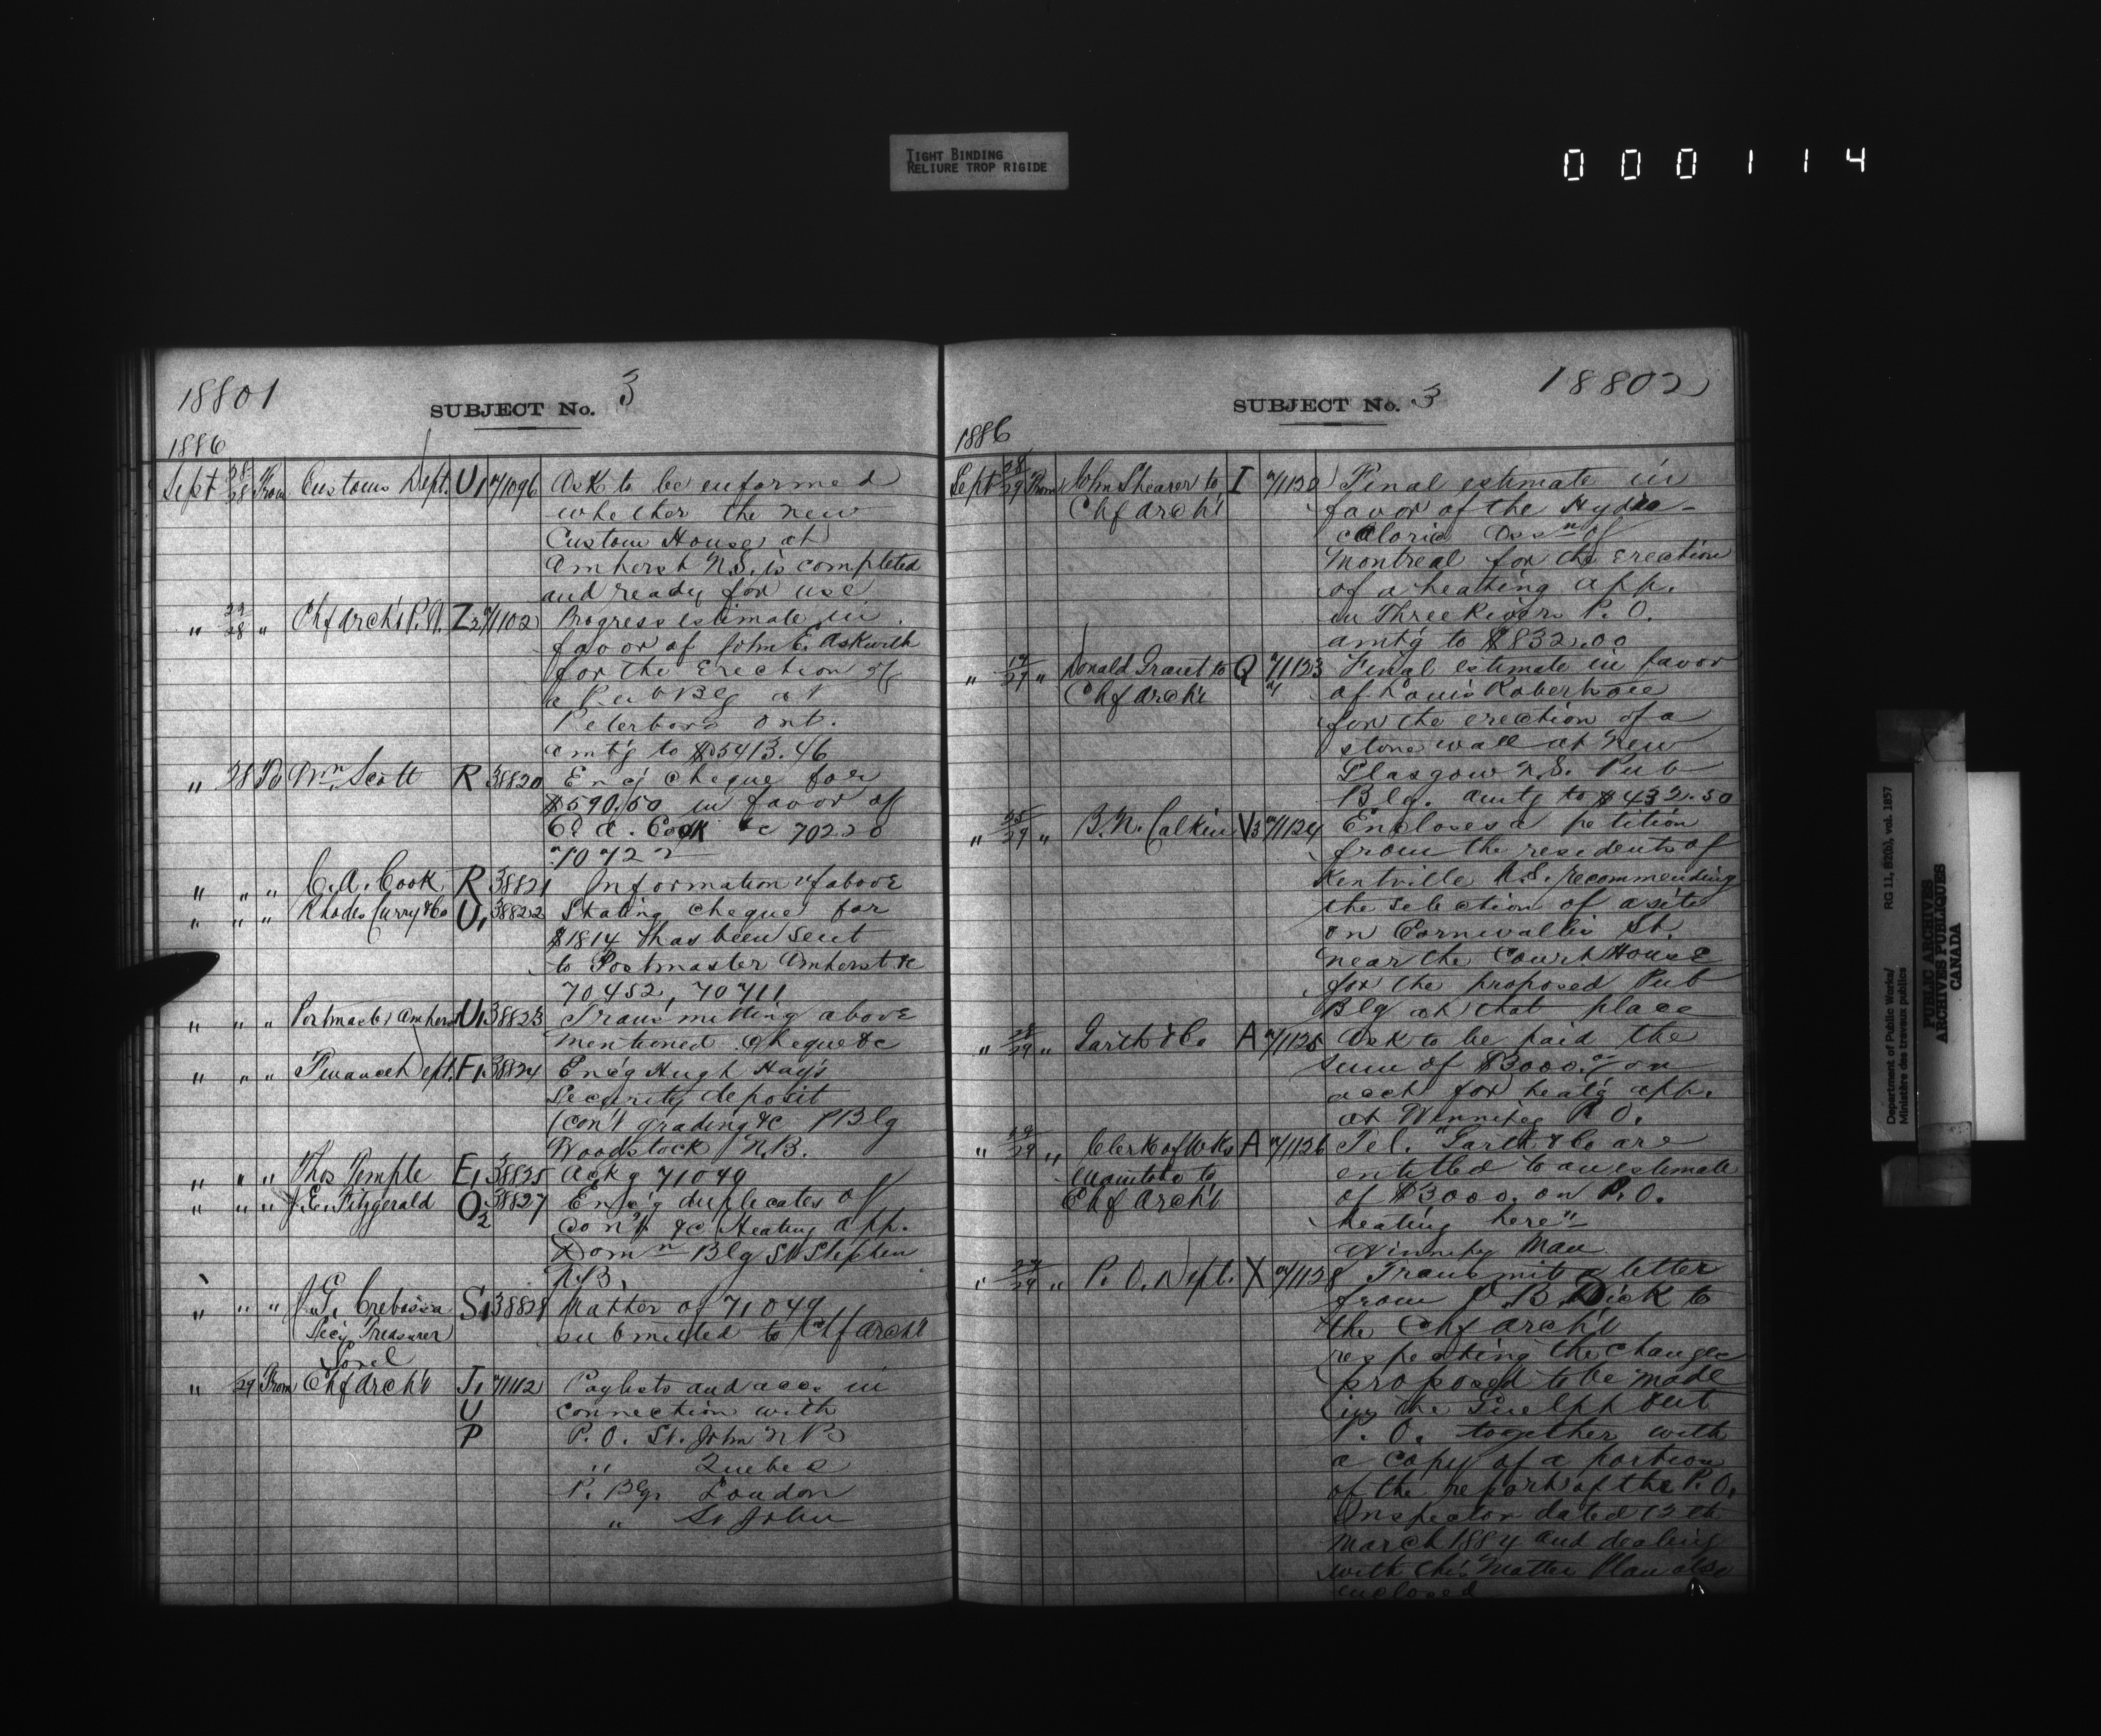 TIGHT BINDING
RELIURE TROP RIGIDE
000114
18801
SUBJECT No. 3
1886
Sept 28/28 From Customs Dept. U1 71096 Ask to be informed
whether the new
Custom House at
Amherst N.S. is completed
and ready for use
" 28 " Chf Archt P.W. Z2 71102 Progress estimate in
favor of John E. Askwith
for the Erection of
a Pub Blg at
Peterboro Ont.
amtg to $5413.46
" 28 To Wm Scott R 38820 Encg cheque for
$590.50 in favor of
C. A. Cook &c 70220
70722
" " " C. A. Cook R 38821 Information of above
" " " Rhodes Curry & Co U1 38822 Stating cheque for
$1814 has been sent
to Postmaster Amherst &c
70452, 70711
" " " Postmaster Amherst U1 38823 Transmitting above
mentioned cheque &c
" " " Finance Dept. F1 38824 Encg Hugh Hay's
Security deposit
(con't grading &c P Blg
Woodstock N.B.
" " " Thos Temple E1 38825 Ackg 71049
" " " J. E. Fitzgerald O2 38827 Encg duplicates of
Con't &c Heating app.
Domn Blg St Stephen
N.B.
" " " J. G. Crebassa S1 38828 Matter of 71049
Secy Treasurer submitted to Chf Archt
Sorel
" 29 From Chf Archt J1 71112 Paylists and accs in
U connection with
P P.O. St. John N B
" Quebec
P. Blgs London
" St John
SUBJECT No. 3
18802
1886
Sept 28/29 From John Shearer to I 71120 Final estimate in
Chf Archt favor of the Hydra-
caloric Assn of
Montreal for the erection
of a heating app.
in Three Rivers P. O.
amtg to $832.00
" 29 " Donald Grant to Q 71123 Final estimate in favor
Chf Archt of Louis
for the erection of a
stone wall at New
Glasgow N.S. Pub
Blg. amtg to $432.50
" 25/29 " B. N. Calkin V3 71124 Encloses a petition
from the residents of
Kentville N.S. recommending
the selection of a site
on Cornwallis St.
near the Court House
for the proposed Pub
Blg at that place
" 28/29 " Garth & Co A 71125 Ask to be paid the
sum of $3000.00 on
acct for heatg app.
at Winnipeg P.O.
" 29 " Clerk of Wks A 71126 Tel. "Garth & Co are
Manitoba to entitled to an estimate
Chf Archt of $3000. on P.O.
heating here"
Winnipeg Man
" 29 " P. O. Dept. X 71128 Transmit a letter
from J. B. Dick to
the Chf Archt
respecting the changes
proposed to be made
in the Guelph Ont
P. O. together with
a copy of a portion
of the report of the P.O.
Inspector dated 12th
March 1884 and dealing
with this Matter Plan also
enclosed
Department of Public Works/ RG 11, B2(b), vol. 1857
Ministère des travaux publics
PUBLIC ARCHIVES
ARCHIVES PUBLIQUES
CANADA